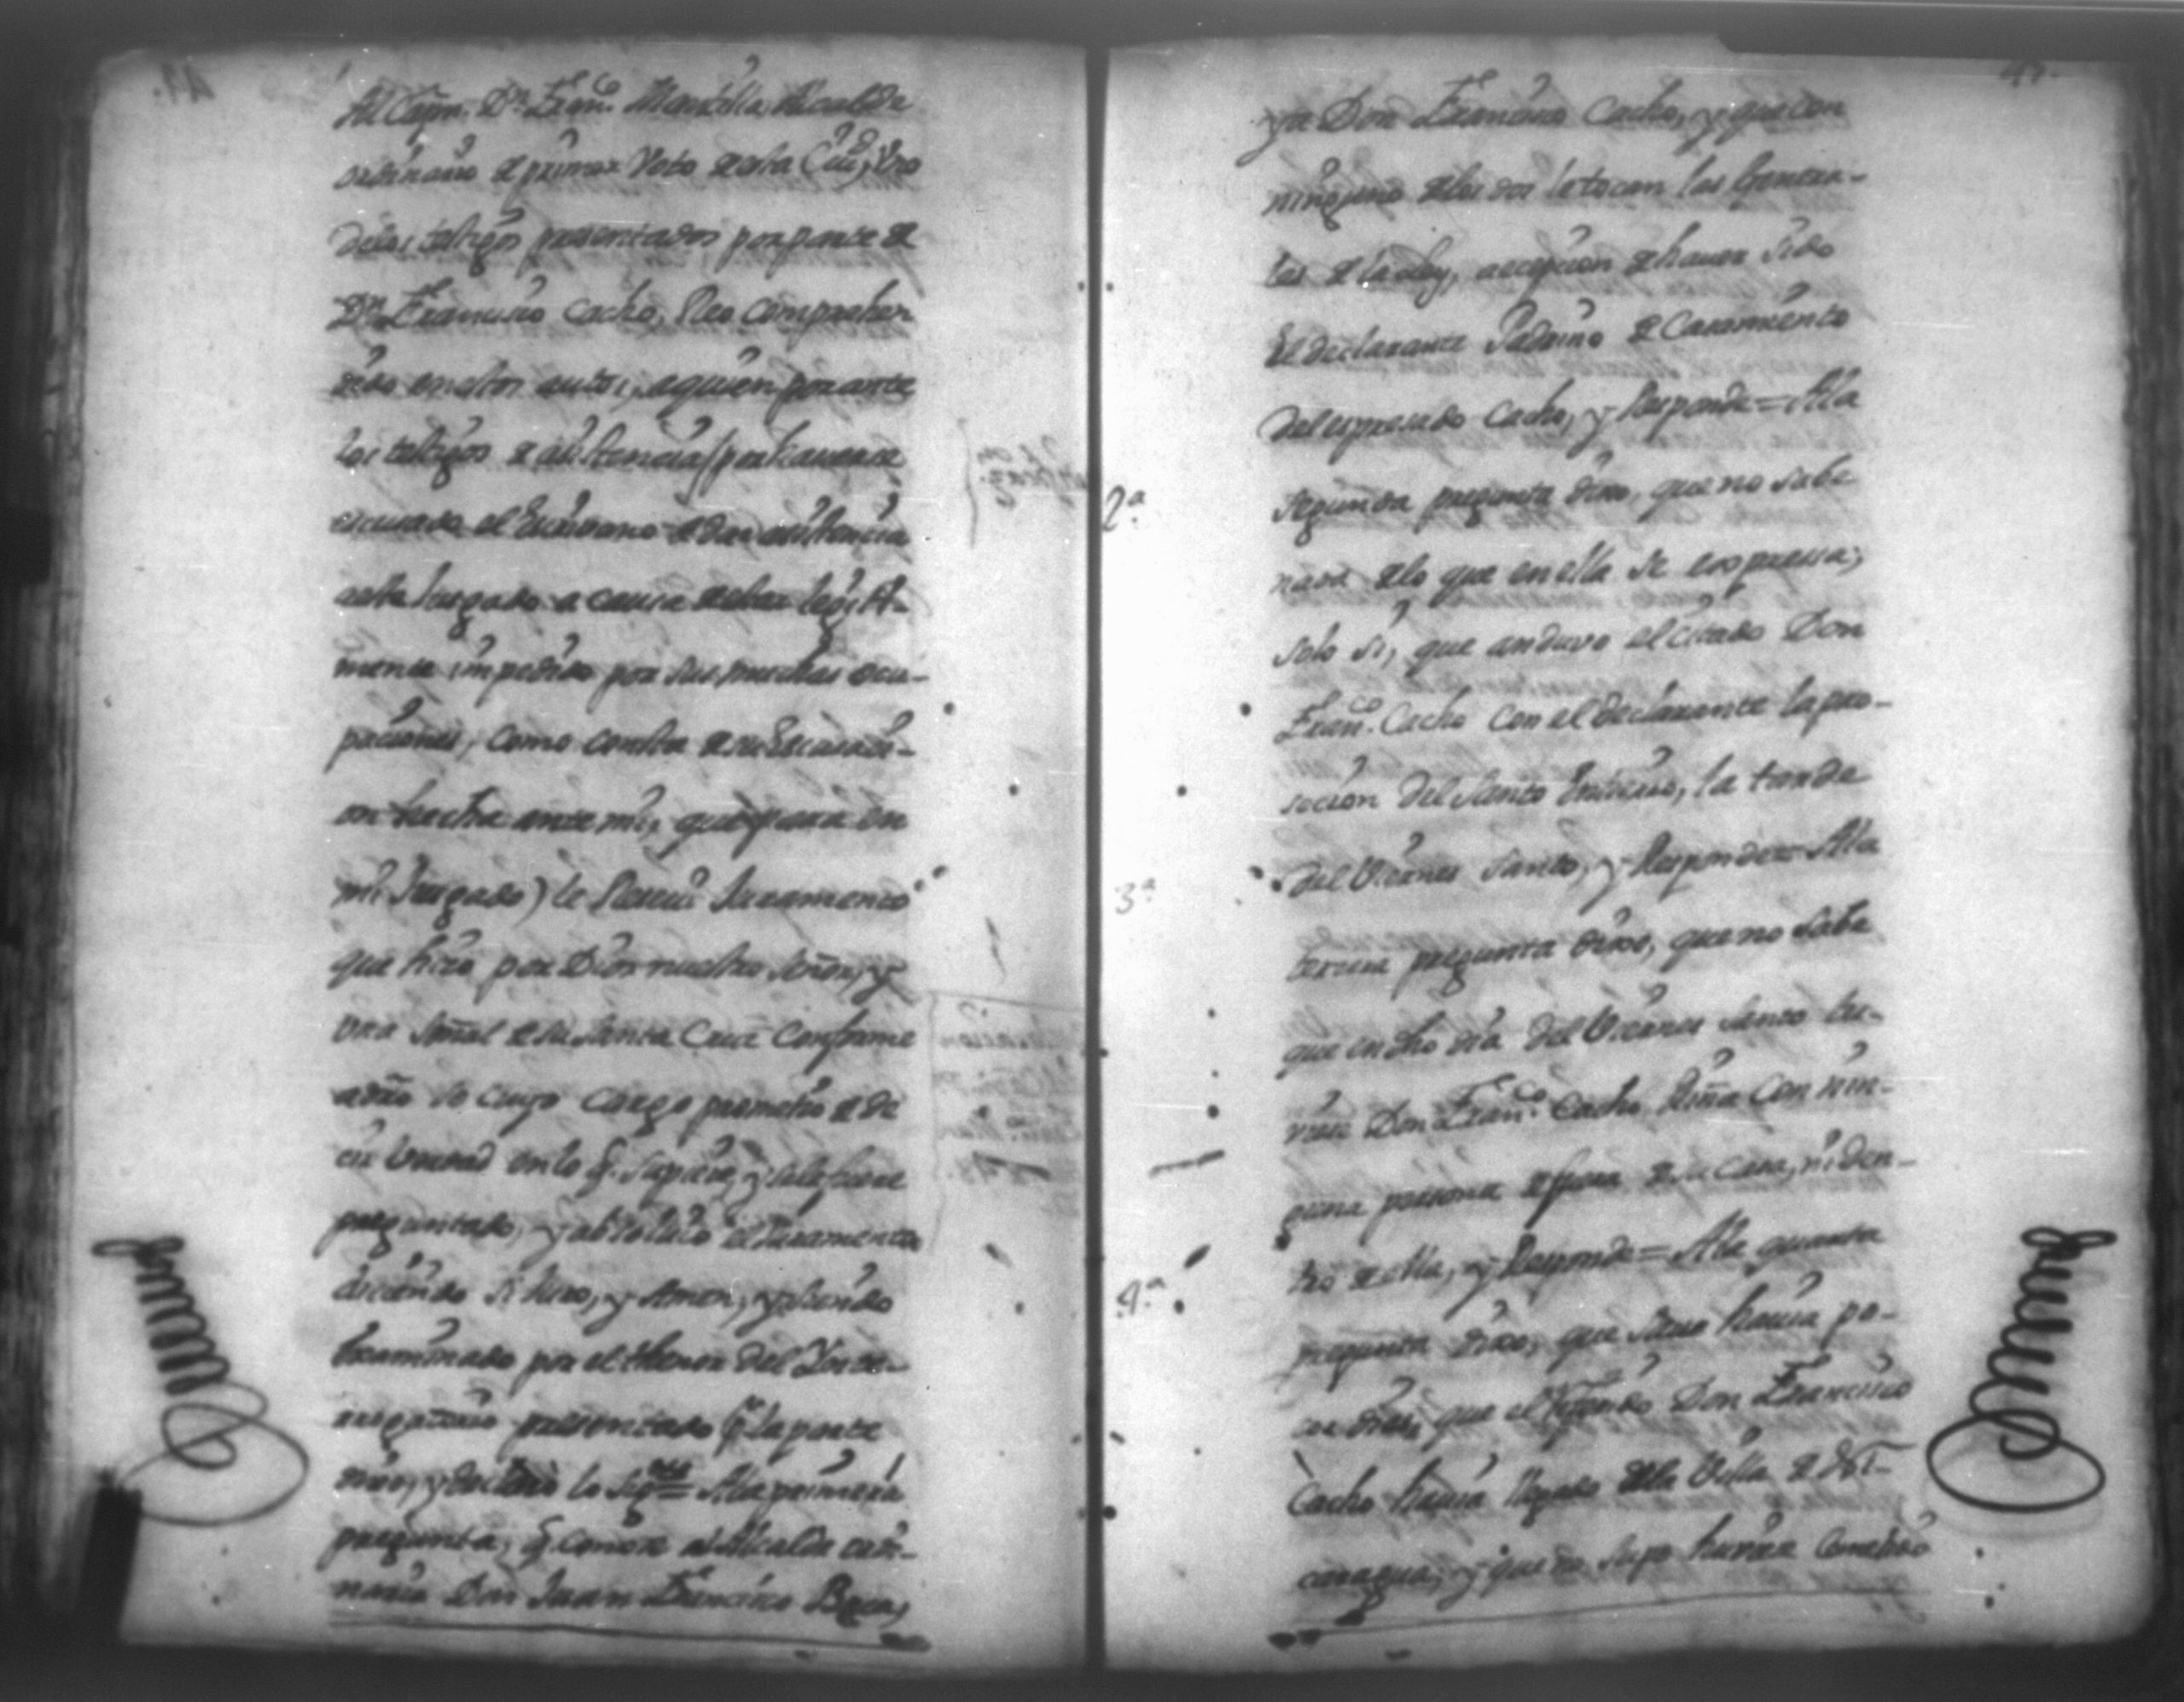 Al Capn. Dn. Franco. Mansilla Alcalde
ordinario de primer Voto de esta Ciud, Uno
de los testigos presentados por parte de
Dn. Francisco Cacho, Reo comprehen
dido en estos autos, a quien por ante
los testigos de asistencia (por haverse
escusado el Escrivano de dar asistencia
a este Juzgado a causa de estar legiti-
mamente impedido por sus muchas ocu-
paciones, como consta de su Escusaci-
on hecha ante mi, que para en
mi Juzgado) le Reciví Juramento
que hizo por Dios nuestro Señor, y
Una Señal de su Santa Cruz conforme
a dro so cuyo cargo prometio de de
cir verdad en lo q. Supiere, y le fuere
preguntado, y absolvió el Juramento
diciendo si Juro, y Amen, y siendo
Examinado por el thenor del Inter-
rogatorio presentado pr. la parte
dixo, y declaró lo Sigte = A la primera
pregunta, q. conoce al Alcalde ordi-
nario Don Juan Francisco Baca,
ya Don Francisco Cacho, y que con
ninguno de los dos le tocan las Genera-
les de la Ley, acepcion de haver sido
El declarante Padrino de Casamiento
del expresado Cacho, y Responde = A la
2a. segunda pregunta dixo, que no sabe
nada de lo que en ella se expressa,
solo si, que anduvo el citado Don
Franco. Cacho con el declarante la pro-
secion del Santo Entierro, la tarde
del Viernes Santo, y Responde = A la
3a tercera pregunta dixo, que no sabe
que en dho dia del Viernes Santo tu-
viese Don Franco. Cacho Riña con nin-
guna persona de fuera de su casa, ni den-
tro de ella, y Responde = A la quarta
4a. pregunta dixo, que havia po-
cos dias, que el Don Francisco
Cacho havia llegado de la Villa de
y que no supo huviera Cometido